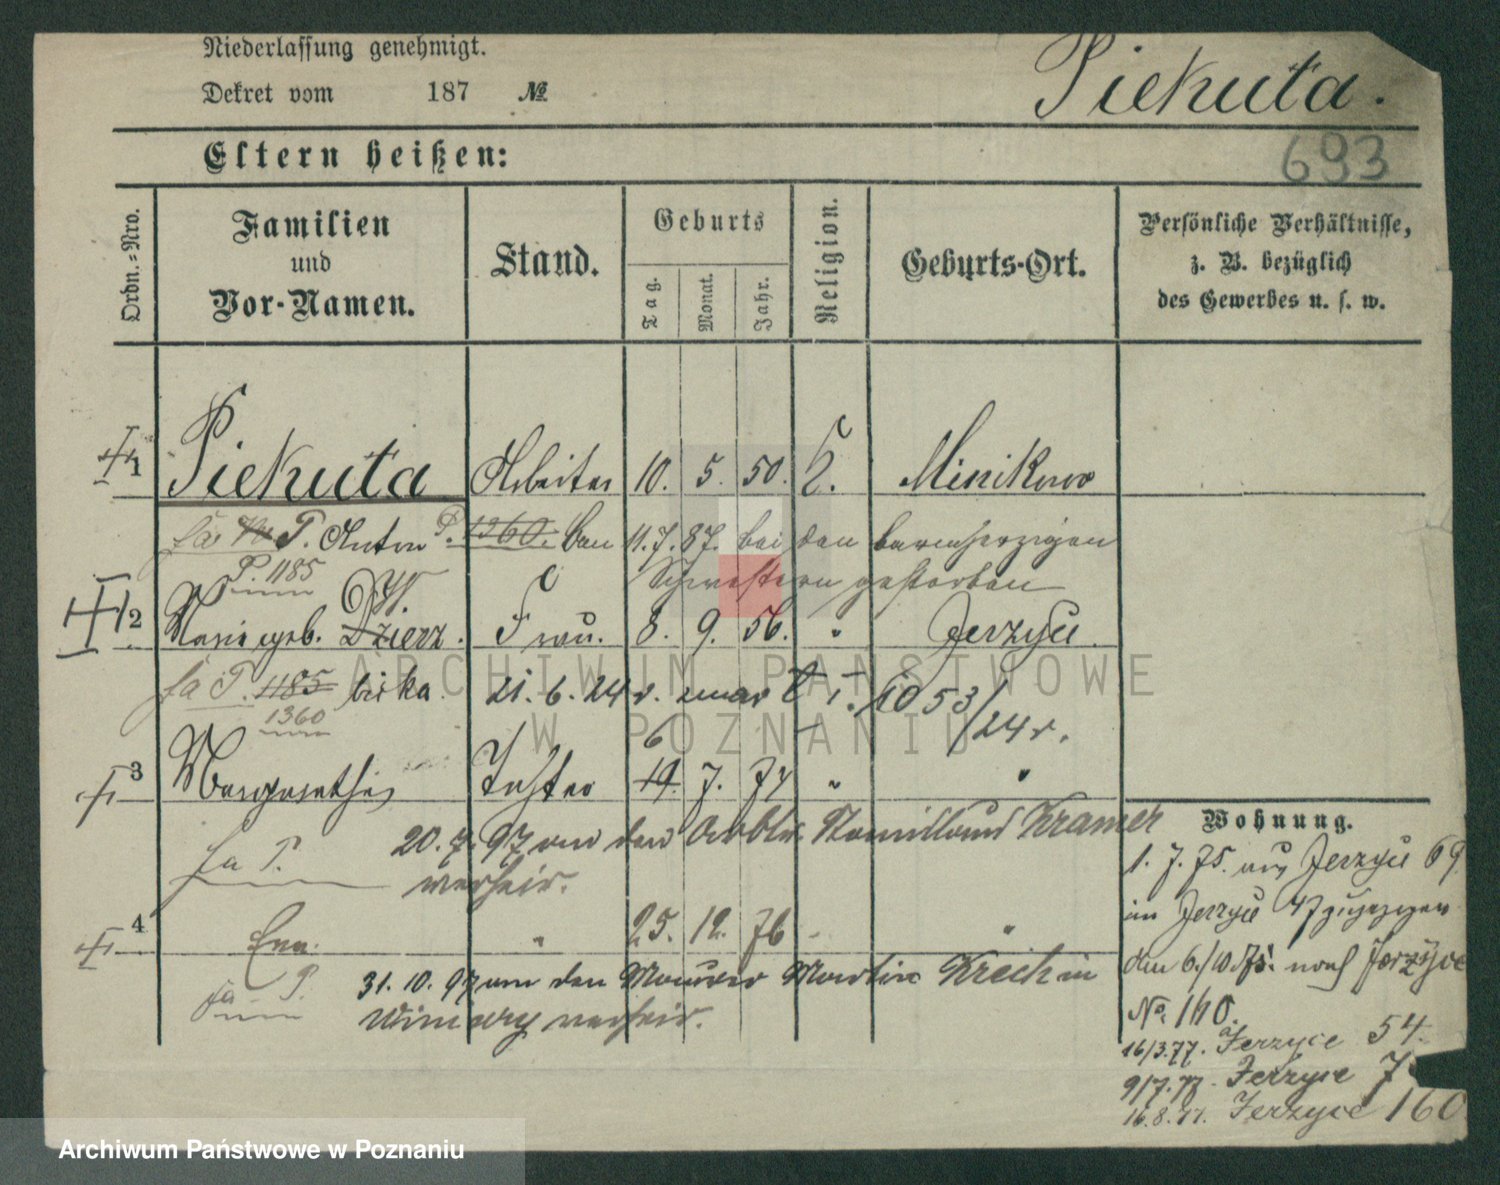 Niederlassung genehmigt.
Dekret vom 187 №
Piekuta.
Eltern heißen:
693
Ordn.-Nro.
Familien
und
Vor-Namen.
Stand.
Geburts
Tag.
Monat.
Jahr.
Religion.
Geburts-Ort.
Persönliche Verhältnisse,
z. B. bezüglich
des Gewerbes u. s. w.
1 Piekuta Arbeiter 10. 5. 50. K. Minikowo
P. Anton P. 1360. am 11.7.87. bei den barmherzigen
P. 1185 Schwestern gestorben
2 Marie geb. Dzierz. Frau. 8. 9. 56. " Jerzyce
P. 1185 birka. 21.6.24 r. zmar 1053/24 r.
1360
6
3 Margarethe Tochter 19. 7. 74 " "
20. 7. 97 an den Arbtr. Stanislaus Kramer
P. verheir.
4 " 25. 12. 76 "
P. 31. 10. 97 an den Maurer Martin Krech in
Winiary verheir.
Wohnung.
1. 7. 75. aus Jerzyce 69
in Jerzyce 47 zugezogen
den 6./10. 75. nach Jerzyce
No. 110.
16/3.77. Jerzyce 54.
9/7.77. Jerzyce 7
16.8.77. Jerzyce 160
ARCHIWUM PAŃSTWOWE
W POZNANIU
Archiwum Państwowe w Poznaniu